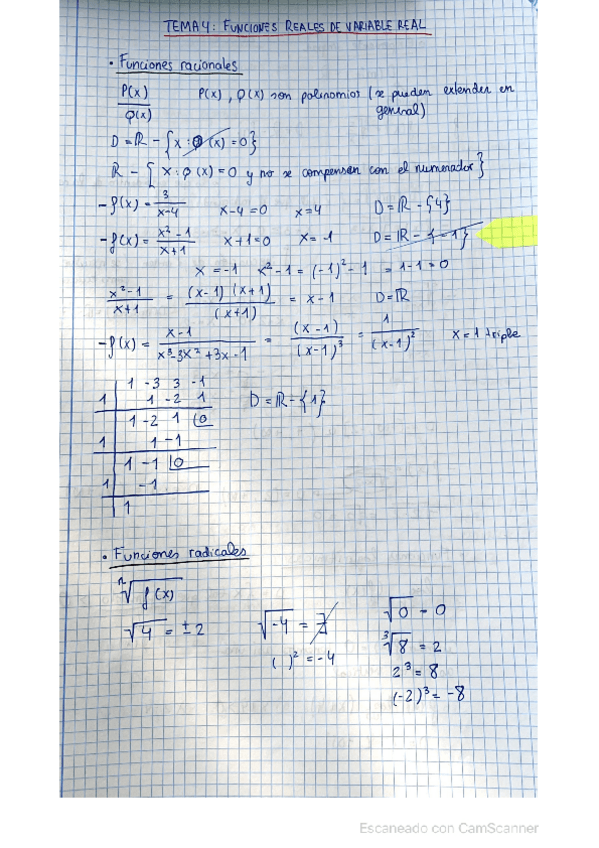 TEMA 4: FUNCIONES REALES DE VARIABLE REAL
• Funciones racionales
P(x)/Q(x)   P(x), Q(x) son polinomios (se pueden extender en
general)
D = ℝ - {x : Q(x) = 0}
ℝ - {x : Q(x) = 0 y no se compensen con el numerador}
- f(x) = 3/(x-4)   x-4 = 0   x = 4   D = ℝ - {4}
- f(x) = (x²-1)/(x+1)   x+1 = 0   x = -1   D = ℝ - {-1}
x = -1   x²-1 = (-1)²-1 = 1-1 = 0
(x²-1)/(x+1) = (x-1)(x+1)/(x+1) = x-1   D = ℝ
- f(x) = (x-1)/(x³-3x²+3x-1) = (x-1)/(x-1)³ = 1/(x-1)²   x = 1 triple
1 -3 3 -1
1 | 1 -2 1   D = ℝ - {1}
1 -2 1 |0
1 | 1 -1
1 -1 |0
1 | -1
1
• Funciones radicales
ⁿ√f(x)   √0 = 0
√4 = ±2   √-4 = ∄   ³√8 = 2
( )² = -4   2³ = 8
(-2)³ = -8
Escaneado con CamScanner